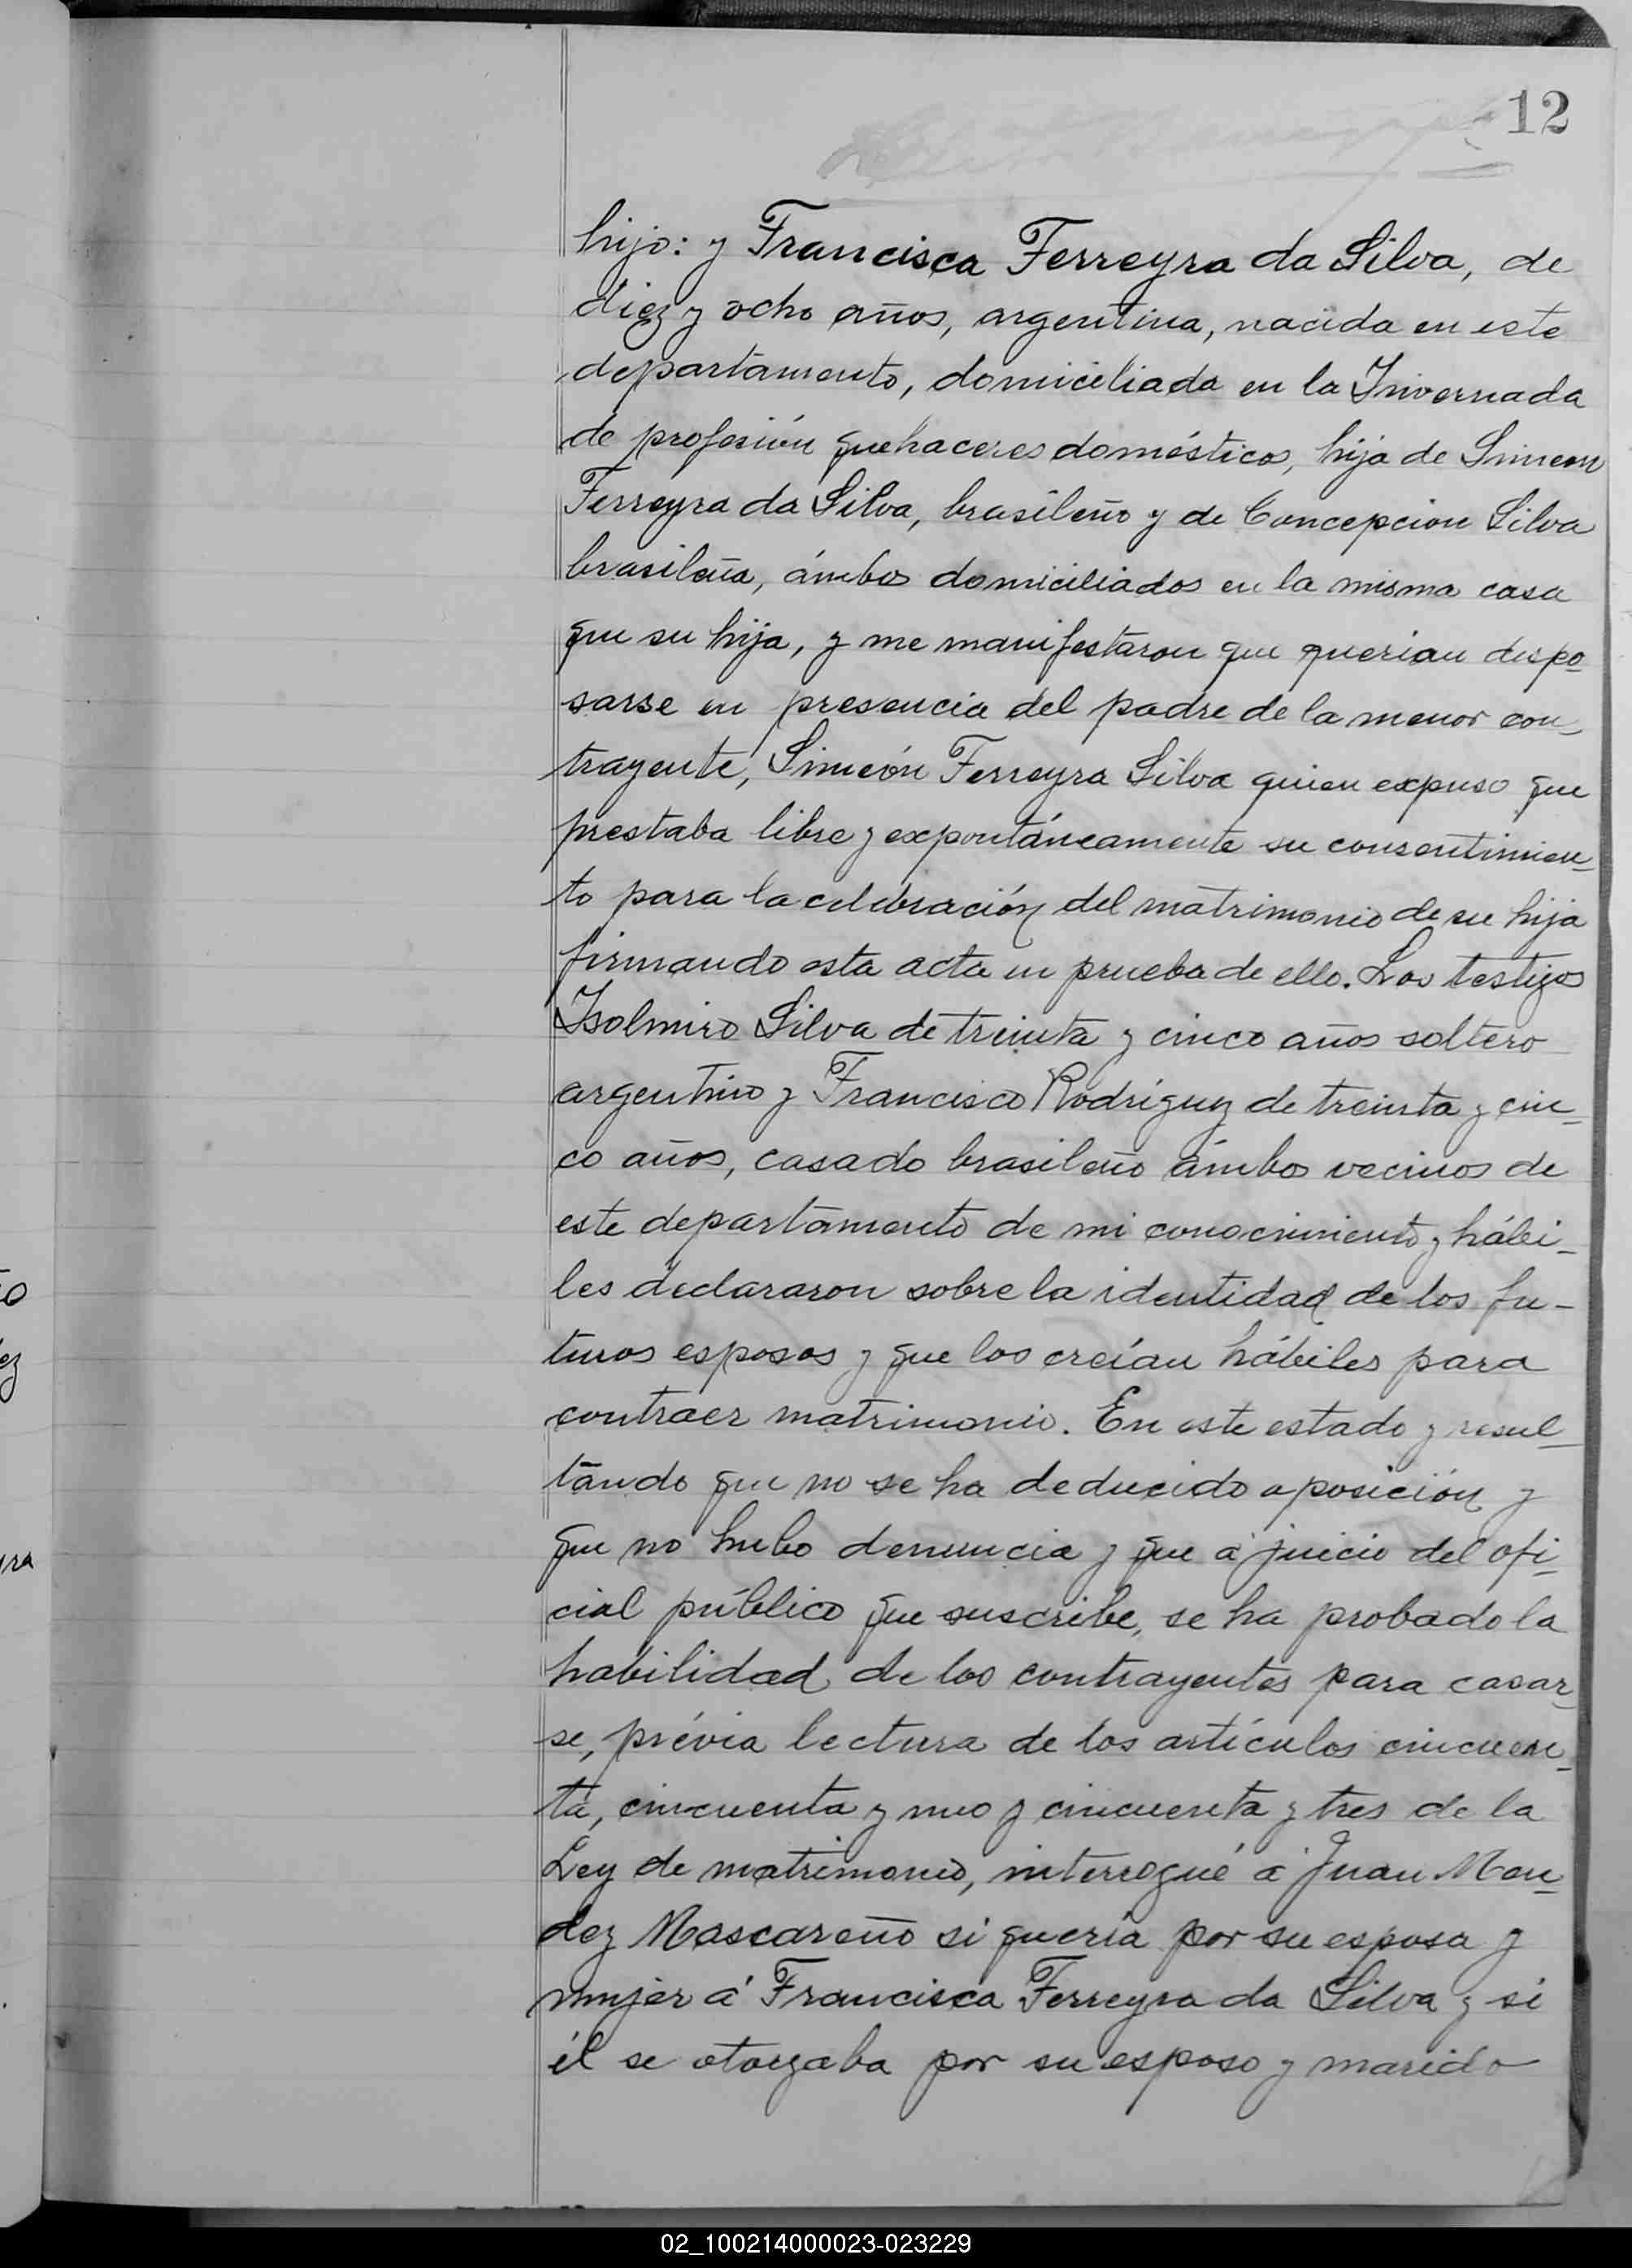 12
hijo: y Francisca Ferreyra da Silva, de
diez y ocho años, argentina, nacida en este
departamento, domiciliada en la Invernada
de profesión quehaceres domésticos, hija de Simeon
Ferreyra da Silva, brasileño y de Concepcion Silva
brasileña, ámbos domiciliados en la misma casa
que su hija, y me manifestaron que querian despo-
sarse en presencia del padre de la menor con-
trayente, Simeón Ferreyra Silva quien expuso que
prestaba libre y expontáneamente su consentimien-
to para la celebración del matrimonio de su hija
firmando esta acta en prueba de ello. Los testigos
Isolmiro Silva de treinta y cinco años soltero
argentino y Francisco Rodríguez de treinta y cin-
co años, casado brasileño ámbos vecinos de
este departamento de mi conocimiento y hábi-
les declararon sobre la identidad de los fu-
turos esposos y que los creían hábiles para
contraer matrimonio. En este estado y resul-
tando que no se ha deducido oposición y
que no hubo denuncia y que á juicio del ofi-
cial público que suscribe, se ha probado la
habilidad de los contrayentes para casar-
se, prévia lectura de los artículos cincuen-
ta, cincuenta y uno y cincuenta y tres de la
Ley de matrimonio, interrogué á Juan Men-
dez Mascareño si quería por su esposa y
mujer á Francisca Ferreyra da Silva y si
él se otorgaba por su esposo y marido
ez
yra
02_100214000023-023229